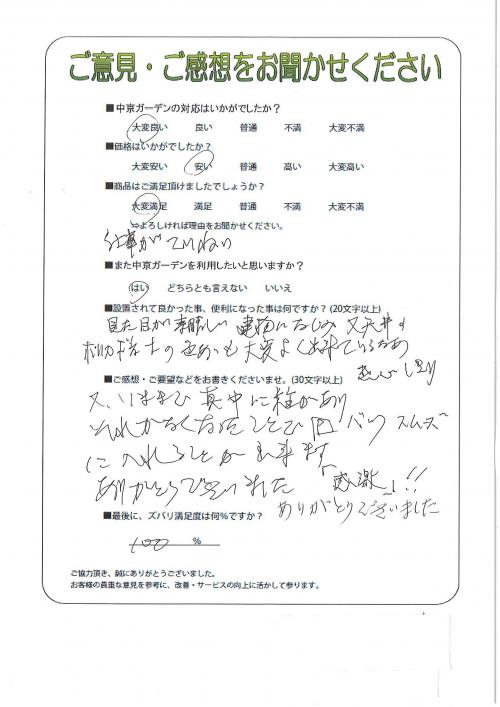 ご意見・ご感想をお聞かせください
■中京ガーデンの対応はいかがでしたか?
大変良い 良い 普通 不満 大変不満
■価格はいかがでしたか?
大変安い 安い 普通 高い 大変高い
■商品はご満足頂けましたでしょうか?
大変満足 満足 普通 不満 大変不満
⇒よろしければ理由をお聞かせください。
仕事がていねい
■また中京ガーデンを利用したいと思いますか?
はい どちらとも言えない いいえ
■設置されて良かった事、便利になった事は何ですか? (20文字以上)
見た目が素晴しい 建物になじみ 又天井の
も大変よく出来ている
■ご感想・ご要望などをお書きくださいませ。(30文字以上)
又、いままで真中に柱があり
それがなくなったことで バック スムーズ
に入れることが出来ます
ありがとうございました 「感激」!!
ありがとうございました
■最後に、ズバリ満足度は何%ですか?
100 %
ご協力頂き、誠にありがとうございました。
お客様の貴重な意見を参考に、改善・サービスの向上に活かして参ります。